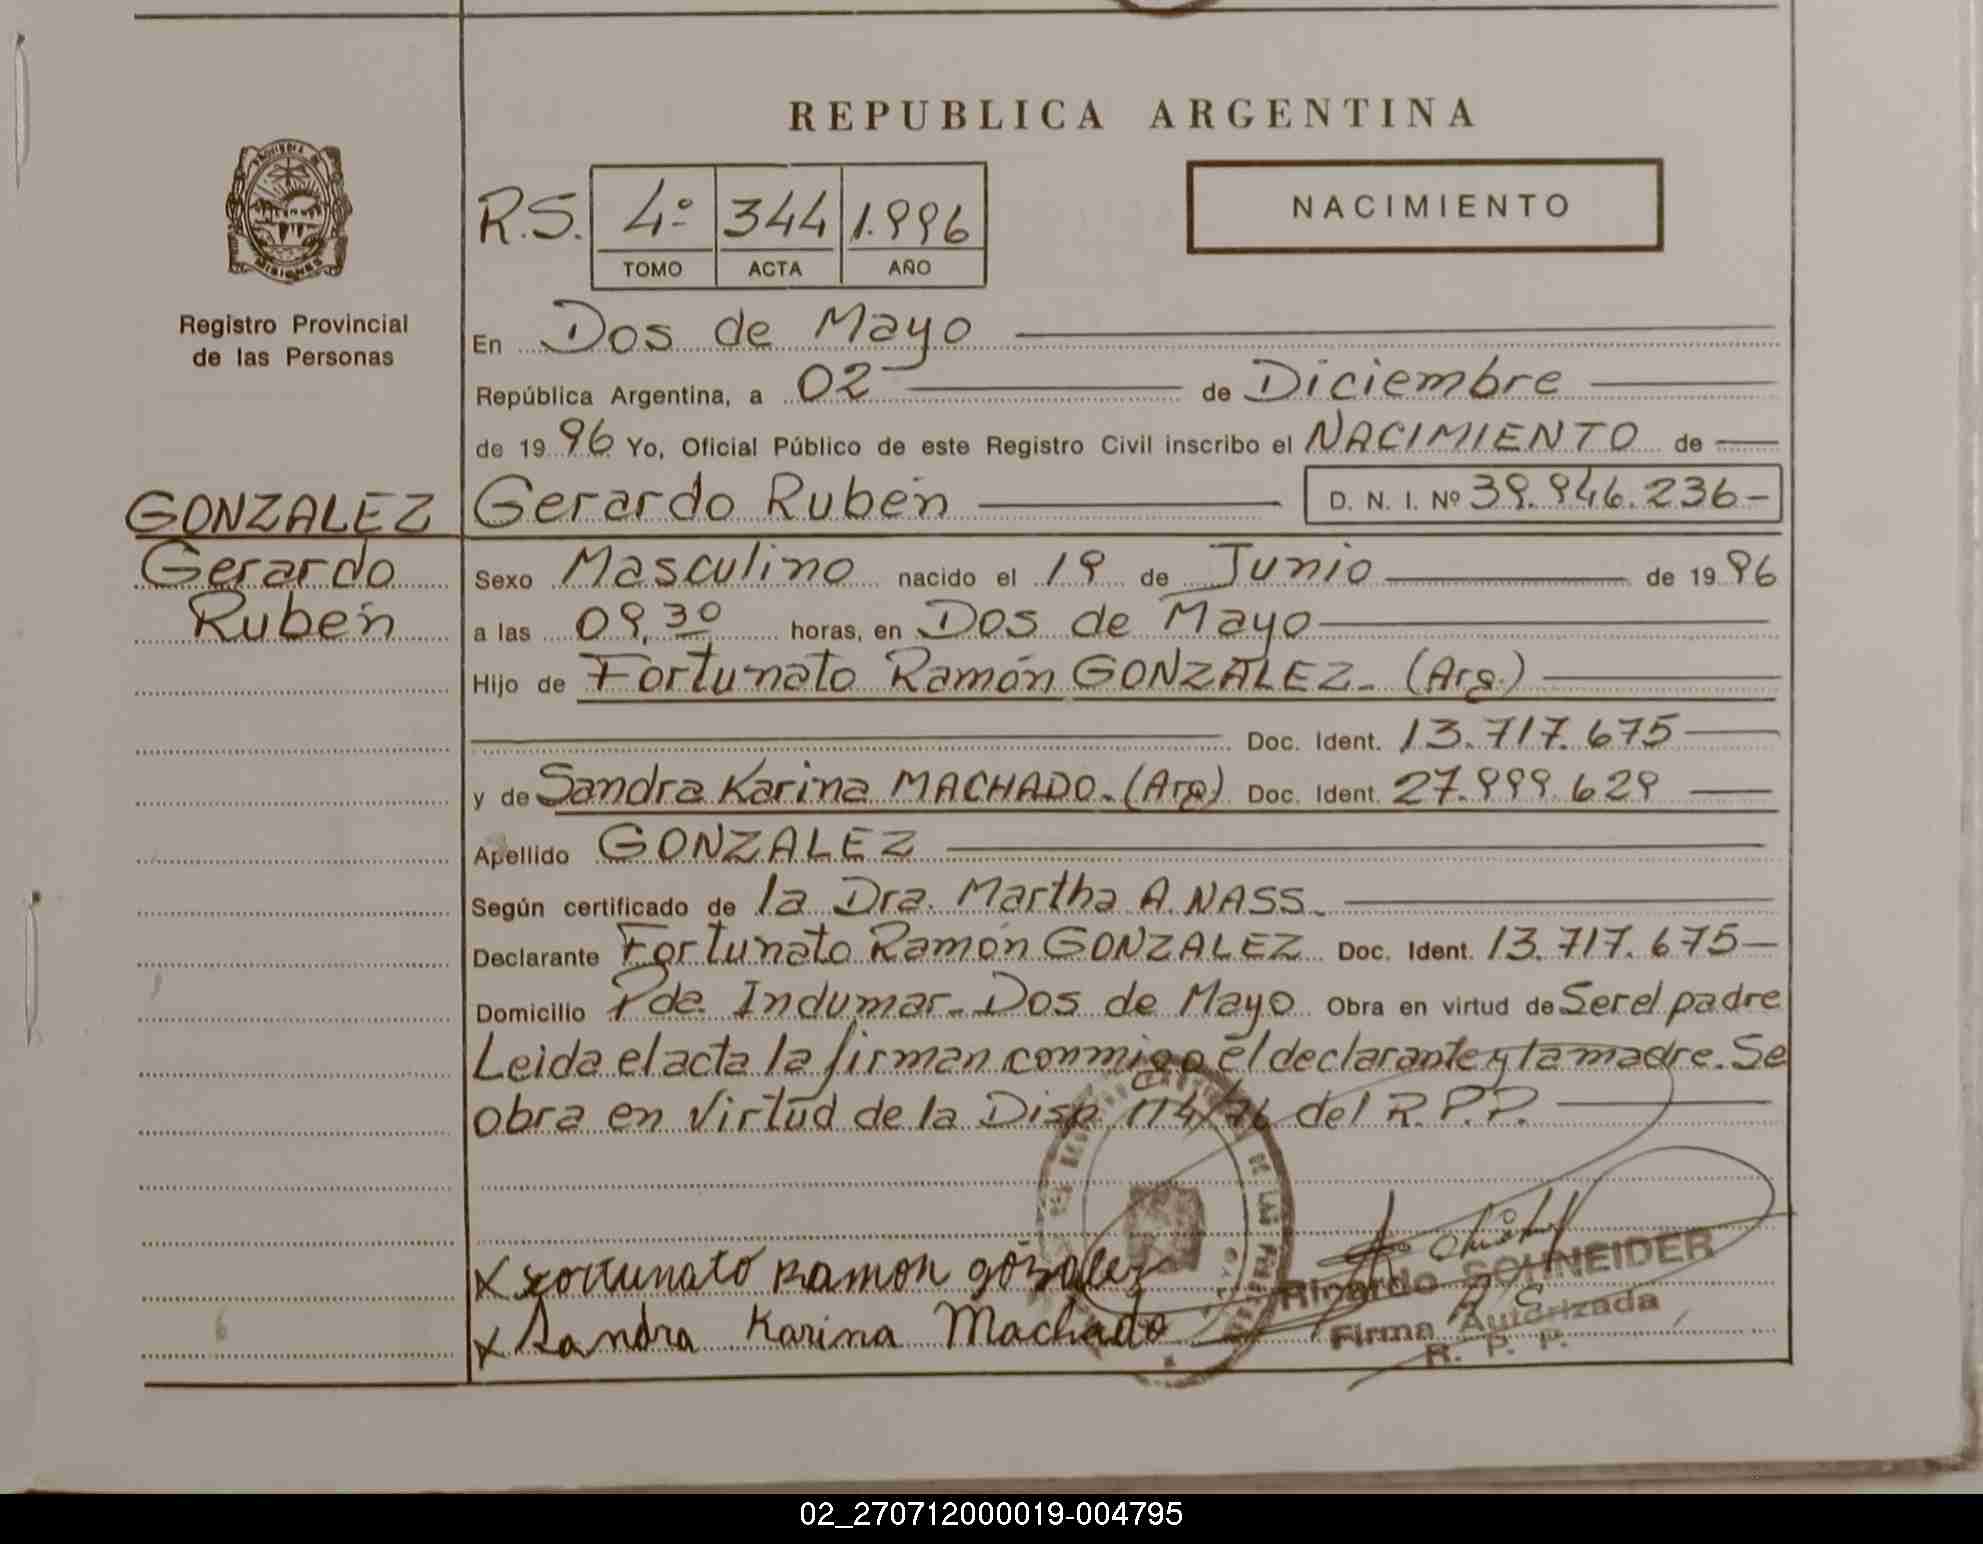 REPUBLICA ARGENTINA
PROVINCIA DE
MISIONES
Registro Provincial
de las Personas
R.S. 4º 344 1.996
TOMO ACTA AÑO
NACIMIENTO
En Dos de Mayo
República Argentina, a 02 de Diciembre
de 19 96 Yo, Oficial Público de este Registro Civil inscribo el NACIMIENTO de
GONZALEZ
Gerardo
Rubén
Gerardo Rubén D. N. I. Nº 39.946.236-
Sexo Masculino nacido el 19 de Junio de 19 96
a las 09,30 horas, en Dos de Mayo
Hijo de Fortunato Ramón GONZALEZ- (Arg.)
Doc. Ident. 13.717.675
y de Sandra Karina MACHADO.(Arg) Doc. Ident. 27.999.629
Apellido GONZALEZ
Según certificado de la Dra. Martha A. NASS.
Declarante Fortunato Ramón GONZALEZ Doc. Ident. 13.717.675-
Domicilio Pda. Indumar-Dos de Mayo Obra en virtud de Ser el padre
Leida el acta la firman conmigo el declarante y la madre. Se
obra en virtud de la Disp. 114/76 del R.P.P.
x Fortunato Ramon gonzalez
x Sandra Karina Machado
Ricardo SCHNEIDER
Firma Autorizada
R. P. P.
02_270712000019-004795